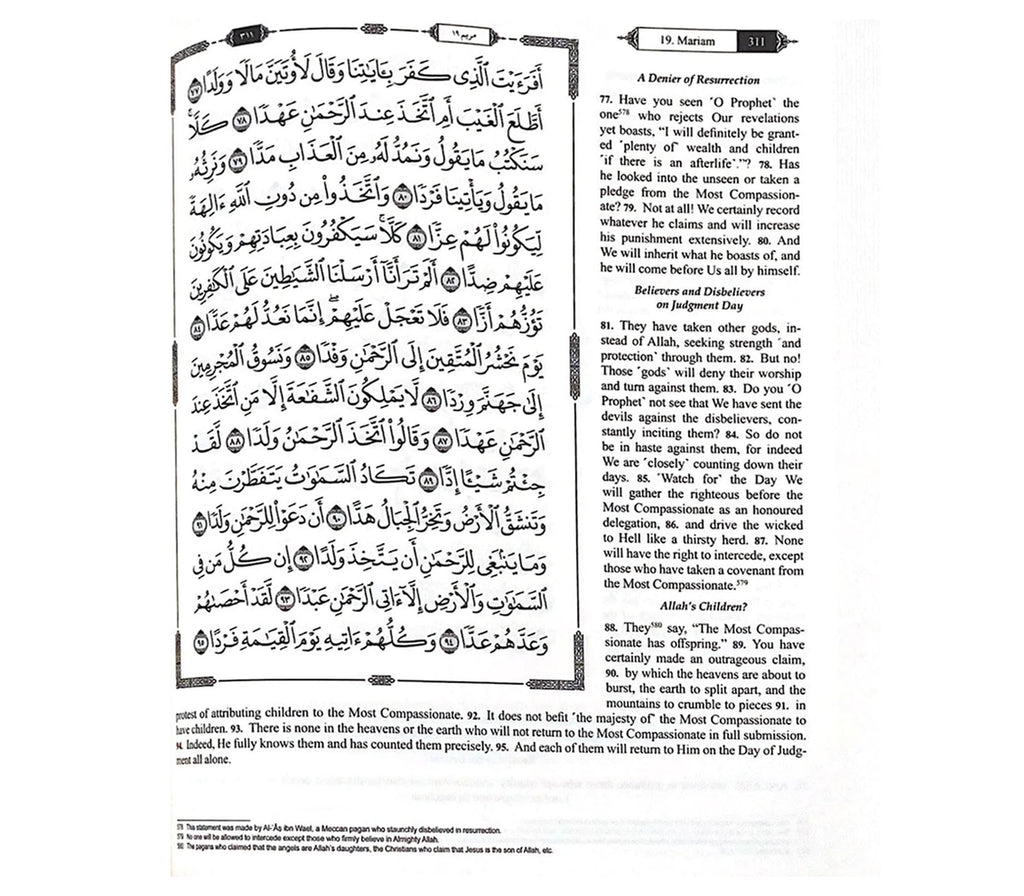 ٣١١
مريم ١٩
أَفَرَءَيْتَ ٱلَّذِى كَفَرَ بِـَٔايَـٰتِنَا وَقَالَ لَأُوتَيَنَّ مَالًا وَوَلَدًا ٧٧
أَطَّلَعَ ٱلْغَيْبَ أَمِ ٱتَّخَذَ عِندَ ٱلرَّحْمَـٰنِ عَهْدًا ٧٨ كَلَّا ۚ
سَنَكْتُبُ مَا يَقُولُ وَنَمُدُّ لَهُۥ مِنَ ٱلْعَذَابِ مَدًّا ٧٩ وَنَرِثُهُۥ
مَا يَقُولُ وَيَأْتِينَا فَرْدًا ٨٠ وَٱتَّخَذُوا۟ مِن دُونِ ٱللَّهِ ءَالِهَةً
لِّيَكُونُوا۟ لَهُمْ عِزًّا ٨١ كَلَّا ۚ سَيَكْفُرُونَ بِعِبَادَتِهِمْ وَيَكُونُونَ
عَلَيْهِمْ ضِدًّا ٨٢ أَلَمْ تَرَ أَنَّآ أَرْسَلْنَا ٱلشَّيَـٰطِينَ عَلَى ٱلْكَـٰفِرِينَ
تَؤُزُّهُمْ أَزًّا ٨٣ فَلَا تَعْجَلْ عَلَيْهِمْ ۖ إِنَّمَا نَعُدُّ لَهُمْ عَدًّا ٨٤
يَوْمَ نَحْشُرُ ٱلْمُتَّقِينَ إِلَى ٱلرَّحْمَـٰنِ وَفْدًا ٨٥ وَنَسُوقُ ٱلْمُجْرِمِينَ
إِلَىٰ جَهَنَّمَ وِرْدًا ٨٦ لَّا يَمْلِكُونَ ٱلشَّفَـٰعَةَ إِلَّا مَنِ ٱتَّخَذَ عِندَ
ٱلرَّحْمَـٰنِ عَهْدًا ٨٧ وَقَالُوا۟ ٱتَّخَذَ ٱلرَّحْمَـٰنُ وَلَدًا ٨٨ لَّقَدْ
جِئْتُمْ شَيْـًٔا إِدًّا ٨٩ تَكَادُ ٱلسَّمَـٰوَٰتُ يَتَفَطَّرْنَ مِنْهُ
وَتَنشَقُّ ٱلْأَرْضُ وَتَخِرُّ ٱلْجِبَالُ هَدًّا ٩٠ أَن دَعَوْا۟ لِلرَّحْمَـٰنِ وَلَدًا ٩١
وَمَا يَنۢبَغِى لِلرَّحْمَـٰنِ أَن يَتَّخِذَ وَلَدًا ٩٢ إِن كُلُّ مَن فِى
ٱلسَّمَـٰوَٰتِ وَٱلْأَرْضِ إِلَّآ ءَاتِى ٱلرَّحْمَـٰنِ عَبْدًا ٩٣ لَّقَدْ أَحْصَىٰهُمْ
وَعَدَّهُمْ عَدًّا ٩٤ وَكُلُّهُمْ ءَاتِيهِ يَوْمَ ٱلْقِيَـٰمَةِ فَرْدًا ٩٥
19. Mariam 311
A Denier of Resurrection
77. Have you seen ˹O Prophet˺ the
one⁵⁷⁸ who rejects Our revelations
yet boasts, “I will definitely be grant-
ed ˹plenty of˺ wealth and children
˹if there is an afterlife˺.”? 78. Has
he looked into the unseen or taken a
pledge from the Most Compassion-
ate? 79. Not at all! We certainly record
whatever he claims and will increase
his punishment extensively. 80. And
We will inherit what he boasts of, and
he will come before Us all by himself.
Believers and Disbelievers
on Judgment Day
81. They have taken other gods, in-
stead of Allah, seeking strength ˹and
protection˺ through them. 82. But no!
Those ˹gods˺ will deny their worship
and turn against them. 83. Do you ˹O
Prophet˺ not see that We have sent the
devils against the disbelievers, con-
stantly inciting them? 84. So do not
be in haste against them, for indeed
We are ˹closely˺ counting down their
days. 85. ˹Watch for˺ the Day We
will gather the righteous before the
Most Compassionate as an honoured
delegation, 86. and drive the wicked
to Hell like a thirsty herd. 87. None
will have the right to intercede, except
those who have taken a covenant from
the Most Compassionate.⁵⁷⁹
Allah's Children?
88. They⁵⁸⁰ say, “The Most Compas-
sionate has offspring.” 89. You have
certainly made an outrageous claim,
90. by which the heavens are about to
burst, the earth to split apart, and the
mountains to crumble to pieces 91. in
protest of attributing children to the Most Compassionate. 92. It does not befit ˹the majesty of˺ the Most Compassionate to
have children. 93. There is none in the heavens or the earth who will not return to the Most Compassionate in full submission.
94. Indeed, He fully knows them and has counted them precisely. 95. And each of them will return to Him on the Day of Judg-
ment all alone.
578 This statement was made by Al-'Âṣ ibn Wael, a Meccan pagan who staunchly disbelieved in resurrection.
579 No one will be allowed to intercede except those who firmly believe in Almighty Allah.
580 The pagans who claimed that the angels are Allah's daughters, the Christians who claim that Jesus is the son of Allah, etc.